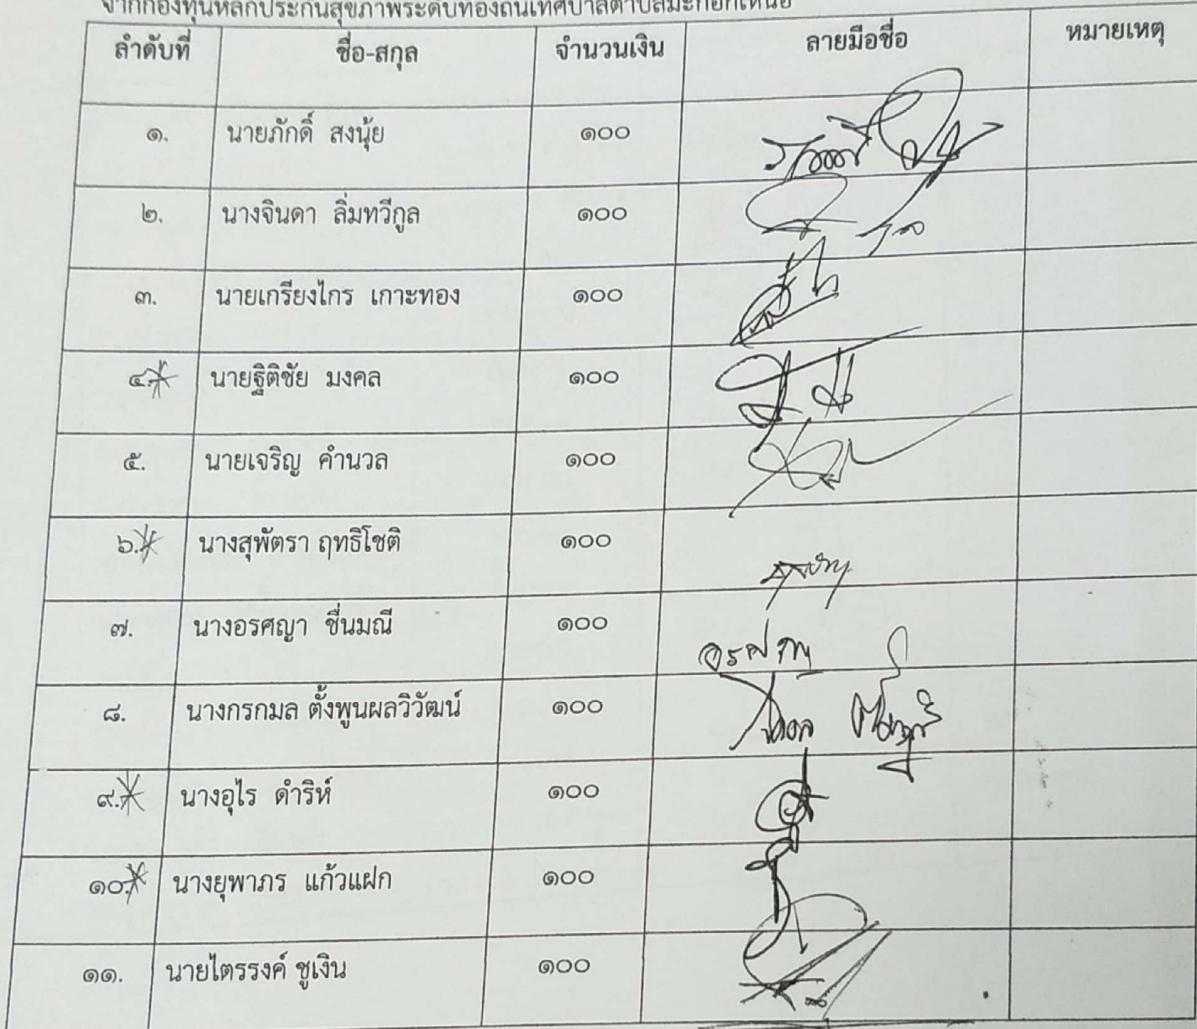 จากกองทุนหลักประกันสุขภาพระดับท้องถิ่นเทศบาลตำบลมะกอกเหนือ
ลำดับที่ ชื่อ-สกุล จำนวนเงิน ลายมือชื่อ หมายเหตุ
๑. นายภักดิ์ สงนุ้ย ๑๐๐
๒. นางจินดา ลิ่มทวีกูล ๑๐๐
๓. นายเกรียงไกร เกาะทอง ๑๐๐
๔. นายฐิติชัย มงคล ๑๐๐
๕. นายเจริญ คำนวล ๑๐๐
๖. นางสุพัตรา ฤทธิโชติ ๑๐๐
๗. นางอรศญา ชื่นมณี ๑๐๐ อรศญา
๘. นางกรกมล ตั้งพูนผลวิวัฒน์ ๑๐๐
๙. นางอุไร ดำริห์ ๑๐๐
๑๐. นางยุพาภร แก้วแฝก ๑๐๐
๑๑. นายไตรรงค์ ชูเงิน ๑๐๐